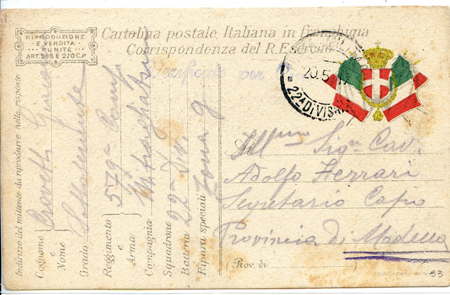 RIPRODUZIONE
E VENDITA
PUNITE
ART. 285 E 270 C.P.
Cartolina postale Italiana in franchigia
Corrispondenza del R. Esercito
Verificato per
20.5
22A DIVIS
Indirizzo del mittente da riprodurre nelle risposte
Cognome e Nome
Grado
Reggimento e Arma 579a Comp.
Compagnia Mitragliatrici
Squadrone
Batteria 22a Div.
Riparti speciali Zona g
Ill.mo Sigr Cav.
Adolfo Ferrari
Segretario Capo
Provincia di Modena
(Prov. di )
53